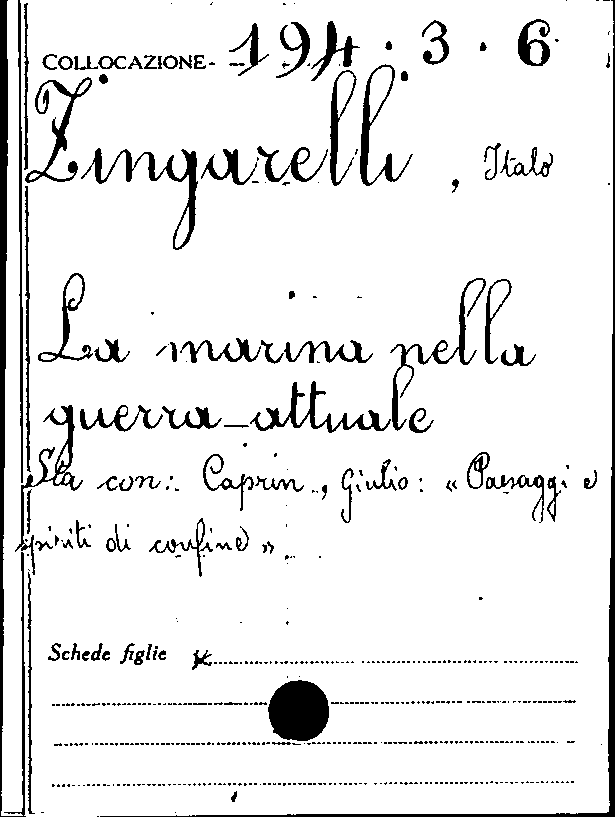 COLLOCAZIONE- 194 · 3 · 6
Zingarelli, Italo
La marina nella
guerra attuale
Sta con: Caprin, Giulio: « Paesaggi e
spiriti di confine ».
Schede figlie